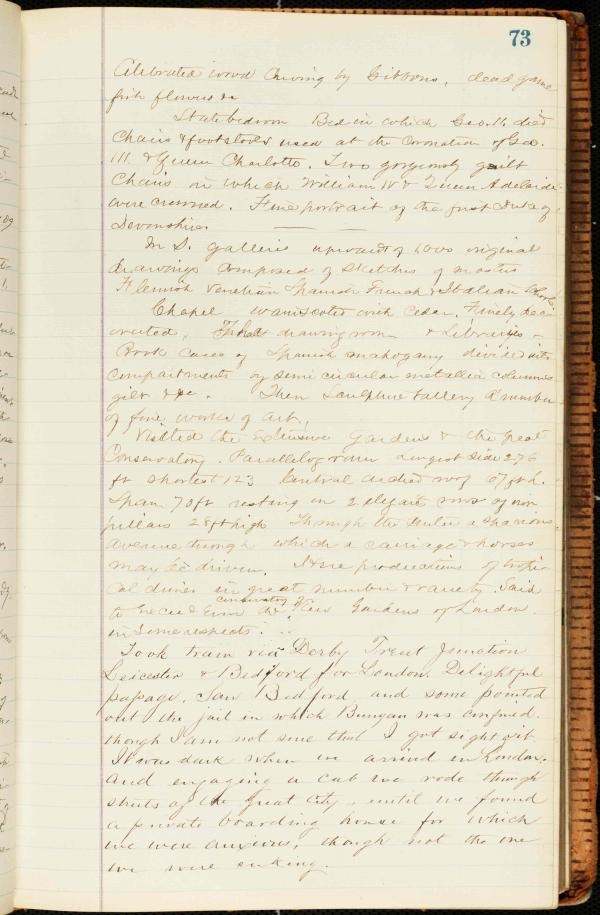 73
Celebrated wood Carving by Gibbons, dead game
fish flowers &c
State bedroom Bed in which Geo. II. died
Chairs & footstools used at the Coronation of Geo.
III. & Queen Charlotte. Two gorgeously guilt
Chairs in which William IV & Queen Adelaide
were crowned. Fine portrait of the first Duke of
Devonshire.
In S. galleries upward of 1000 original
drawings composed of sketches of masters
Flemish Venetian Spanish French & Italian Schools
Chapel wainscoted with Cedar. Finely dec
orated. drawing room & Libraries –
Book cases of Spanish mahogany divided into
compartments by semi circular metallic columns
gilt &c. Then Sculpture Gallery & number
of fine works of art.
Visited the extensive Gardens & the great
Conservatory. Parallelogram Longest side 276
ft shortest 123 Central arched roof 67 ft h.
Span 70 ft resting on 2 elegant rows of iron
pillars 28 ft high Through the Center a spacious
avenue through which a carriage & horses
may be driven. Here productions of tropi
cal climes in great number & variety. Said
to exceed even the conservatory of Kew Gardens of London
in some respects.
Took train via Derby Trent Junction
Leicester & Bedford for London. Delightful
passage. Saw Bedford and some pointed
out the jail in which Bunyan was confined.
though I am not sure that I got sight of it.
It was dark when we arrived in London.
And engaging a cab we rode through
streets of the Great City, until we found
a private boarding house for which
we were anxious, though not the one
we were seeking.